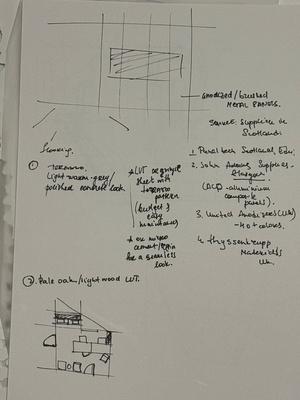 Anodized/brushed
METAL PANELS.
Source: Suppliers in
Scotland:
1.
2. John
Glasgow
(ACP - aluminium
composite
panels).
3. United Anodisers (UK)
- 40+ colors.
4. thyssenkrupp
Materials
UK.
Flooring.
①
Terrazzo.
Light warm-grey/
polished concrete look.
* LVT or vinyl
sheet with
terrazzo
pattern
(budget &
easy
maintenance)
* or micro
cement/resin
for a seamless
look.
② Pale oak/light wood LVT.